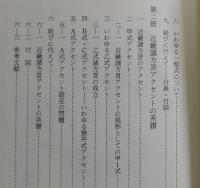 九 いわゆる一型式について
九 結びに代えて──付表・付図
第二冊 近畿諸方言アクセントの系譜
一 近畿諸方言のアクセント
二 甲式アクセント
二―一 近畿諸方言アクセントの祖形としての甲一式
三 乙式諸方言の成立
四 B式・C式アクセント──いわゆる垂井式アクセント
五 A式アクセント
五―一 A式アクセント認定の問題
六 結びに代えて
六―一 近畿諸方言アクセントの系譜
六―二 付図
六―三 参考文献